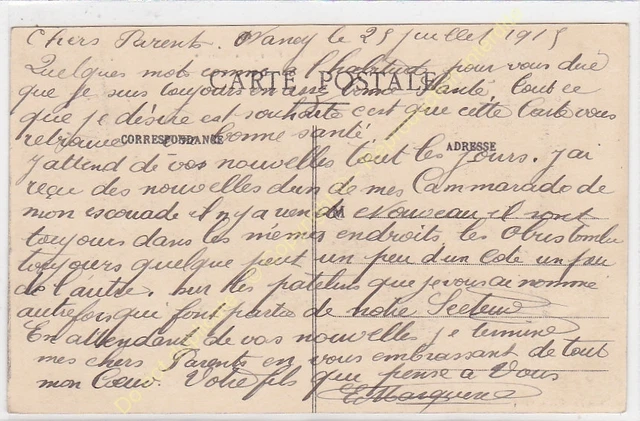 Chers Parents. Nancy le 25 juillet 1915
Quelques mots comme a l'habitud pour vous dire
CARTE POSTALE
que je suis toujours en Santé, tout ce
que je désire est souhaite c'est que cette Carte vous
retrouve bonne santé
CORRESPONDANCE
ADRESSE
J'attend de vos nouvelles tout les Jours. J'ai
reçu des nouvelles d'un de mes Cammarade de
mon escouade il n'y a rien de Nouveau il sont
toujours dans les mêmes endroits les Obus tombe
toujours quelque peut un peu d'un Coté un peu
de l'autre. sur les patelins que je vous ai nommé
autrefois qui font partie de notre Secteur
En attendant de vos nouvelles je termine
mes chers Parents en vous embrassant de tout
mon Cœur. Votre fils qui pense a Vous